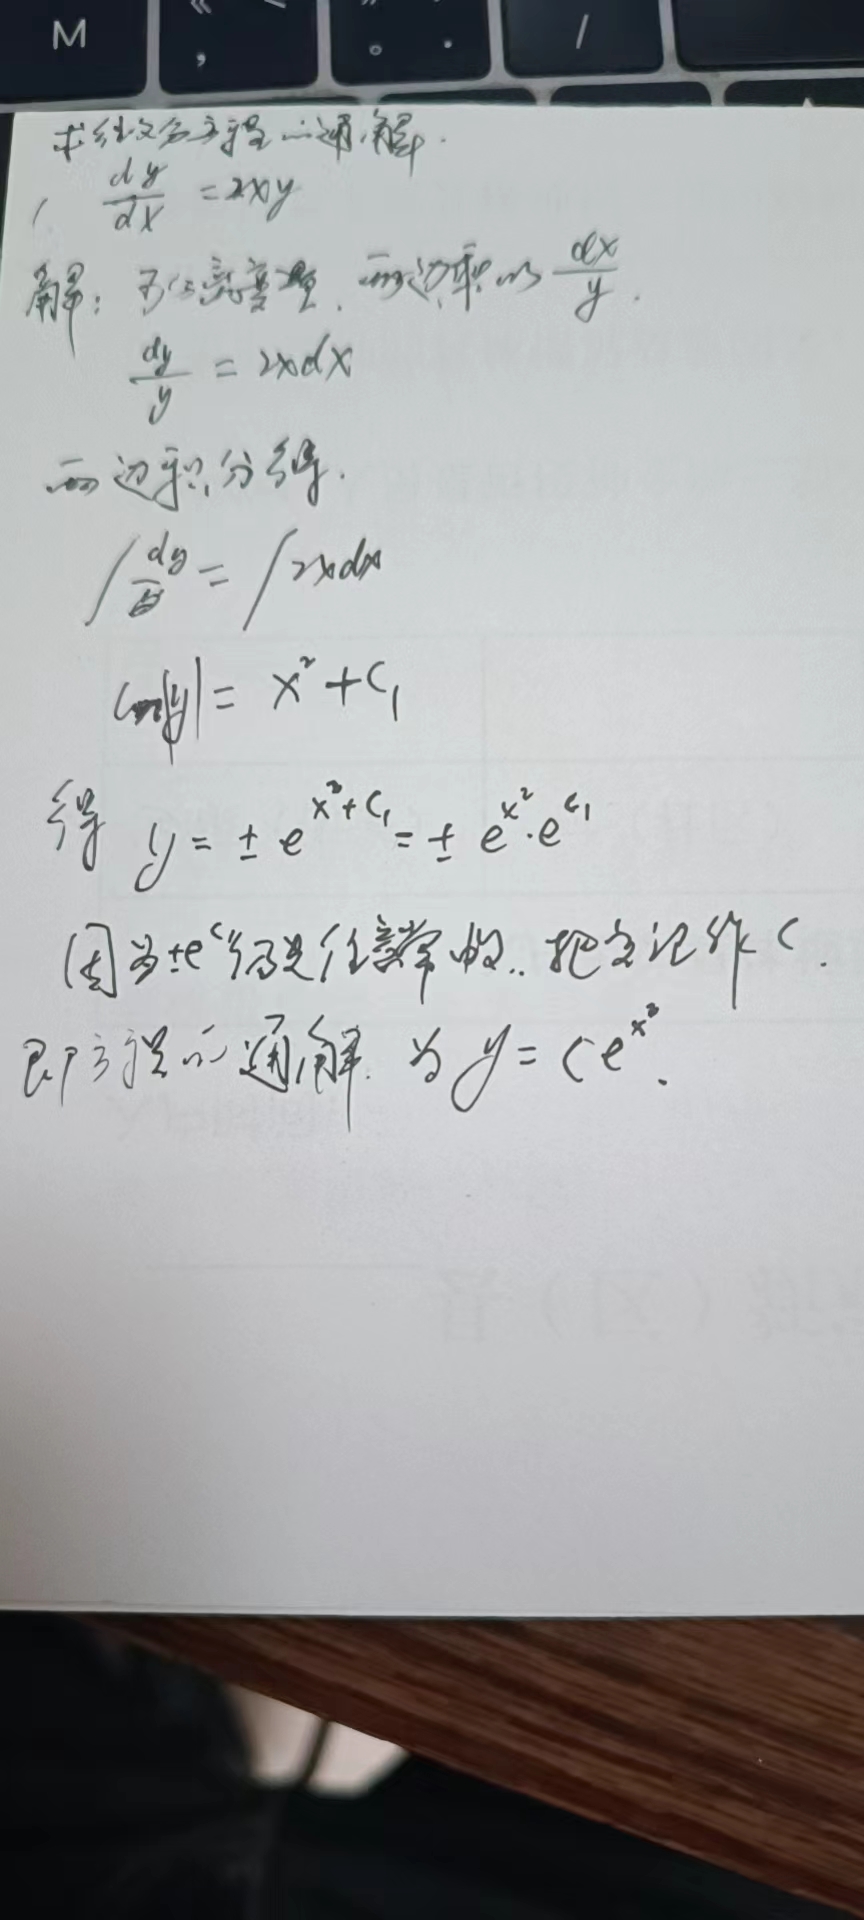 M
求微分方程的通解.
1 dy/dx = 2xy
解: 可分离变量. 两边乘以 dx/y.
dy/y = 2xdx
两边积分得.
∫dy/y = ∫2xdx
ln|y| = x² + C₁
得 y = ± e^(x²+C₁) = ± e^(x²)·e^(C₁)
因为 ±e^(C₁) 仍是任意常数.. 把它记作 C.
即方程的通解. 为 y = Ce^(x²).